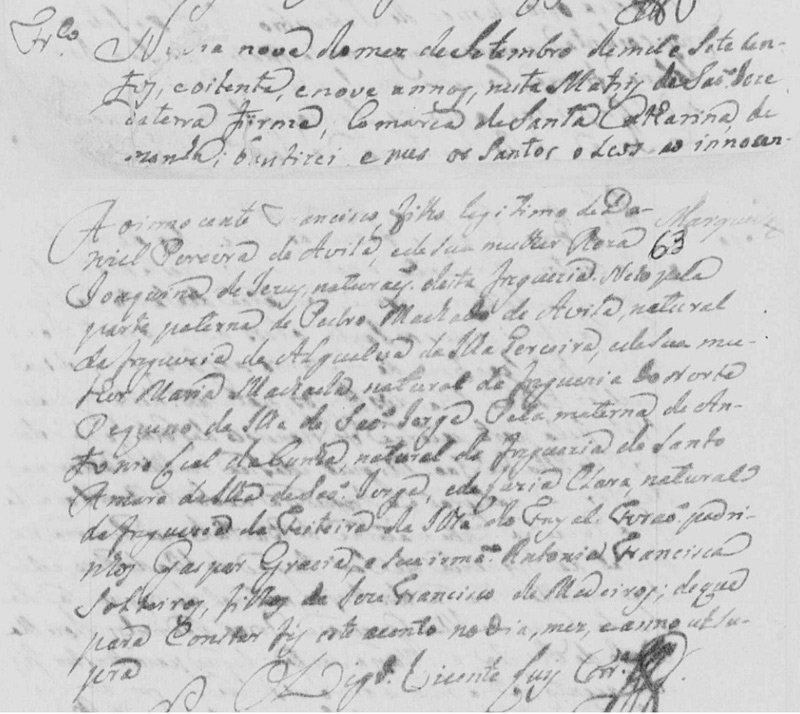 Fr.co
No dia nove do mez de Setembro de mil e Sete cen-
tos, e oitenta, e nove annos, nesta Matriz de São Jose
da terra firme, Comarca de Santa Catharina, de
manhã; bautizei e pus os Santos oleos ao innocen-
Ao innocente Francisco, filho legitimo de Da-
niel Pereira de Avila, e de sua mulher Roza
Marques
63
Joaquina de Jezus, naturaes desta freguezia. Neto pela
parte paterna de Pedro Machado de Avila, natural
da freguezia de Agualva da Ilha Terceira, e de sua mu-
lher Maria Machada, natural da freguezia do Norte
Pequeno da Ilha de São Jorge. Pela materna de An-
tonio Leal da Cunha, natural da freguezia de Santo
Amaro da Ilha de São Jorge, e de Maria Clara, natural
da freguezia da Feiteira da Ilha do Fayal. Forão padri-
nhos Gaspar Gracia, e sua irmã Antonia Francisca
Solteiros, filhos de Joze Francisco de Medeiros; de que
para Constar fiz este acento no dia, mez, e anno ut su-
pra
Vigr.o Vicente